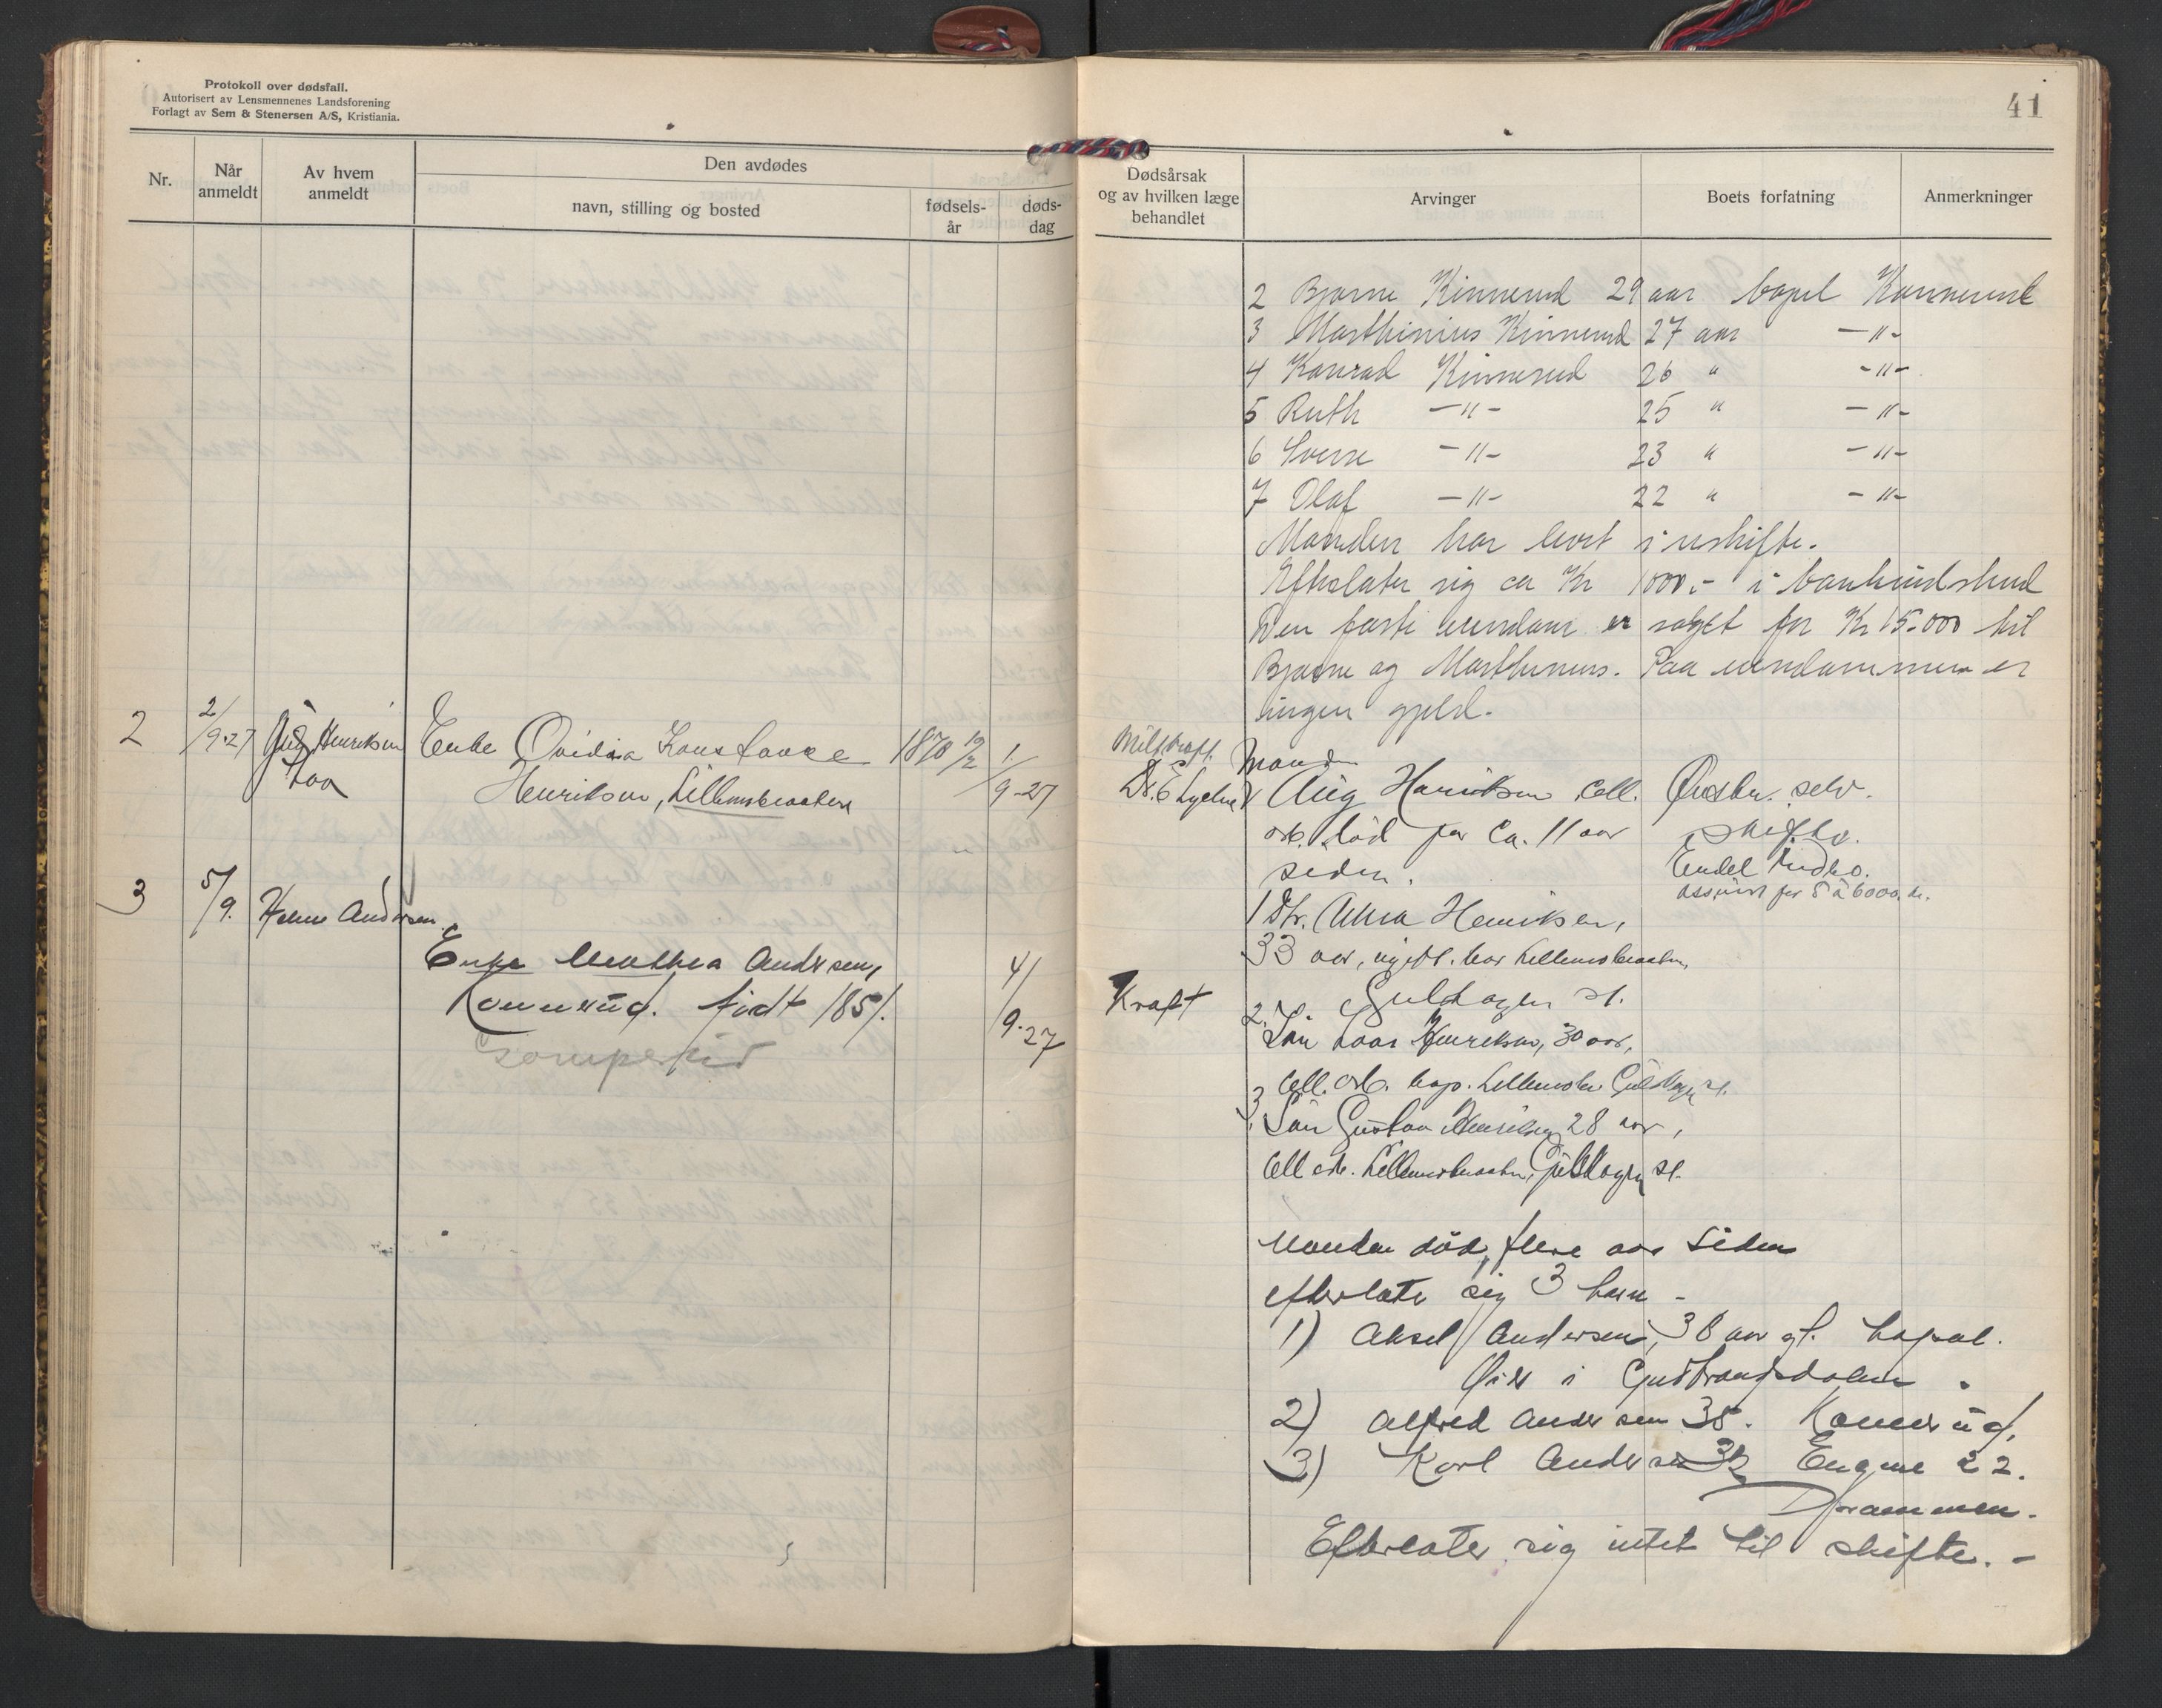 Protokoll over dødsfall.
Autorisert av Lensmennenes Landsforening
Forlagt av Sem & Stenersen A/S, Kristiania.
Nr.
Når anmeldt
Av hvem anmeldt
Den avdødes
navn, stilling og bosted
fødsels-år
døds-dag
2 2/9-27 Henriksen Enke Ovidia Konstanse 1870 19/2 1/9-27
Henriksen, Lillemsbraaten
3 5/9. Andersen
Enke Mathea Andersen, 4/9-27
Konnerud. født 1851.
41
Dødsårsak
og av hvilken læge
behandlet
Arvinger
Boets forfatning
Anmerkninger
2 Bjarne Kinnerud 29 aar bopel Konnerud
3 Marthinius Kinnerud 27 aar -"-
4 Konrad Kinnerud 26 " -"-
5 Ruth -"- 25 " -"-
6 Sverre -"- 23 " -"-
7 Olaf -"- 22 " -"-
Manden har levet i uskifte.
Efterlater sig ca Kr 1000.- i bankindskud
Den faste eiendom er solgt for Kr 15.000 til
Bjarne og Marthinius. Paa eiendommen er
ingen gjeld.
Manden
Aug Henriksen cell.
arb. død for ca. 11 aar
siden.
skifte.
Endel indbo.
assurert for 5 à 6000 kr.
1 Dtr. Anna Henriksen,
33 aar, ugift. bor Lillemsbraaten,
Gulskogen st.
Kraft
2. Søn Henriksen, 30 aar,
cell. arb. bop. Gulskogen st.
3. Søn Gustav Henriksen 28 aar,
cell arb. Lillemsbraaten, Gulskogen st.
Manden død, flere aar siden
efterlater sig 3 barn -
1) Aksel Andersen, 38 aar gl. bopæl.
i Gudbrandsdalen.
2) Alfred Andersen 35. Konnerud,
3) Karl Andersen 32 Engene 22.
Drammen.
Efterlater sig intet til skifte. -